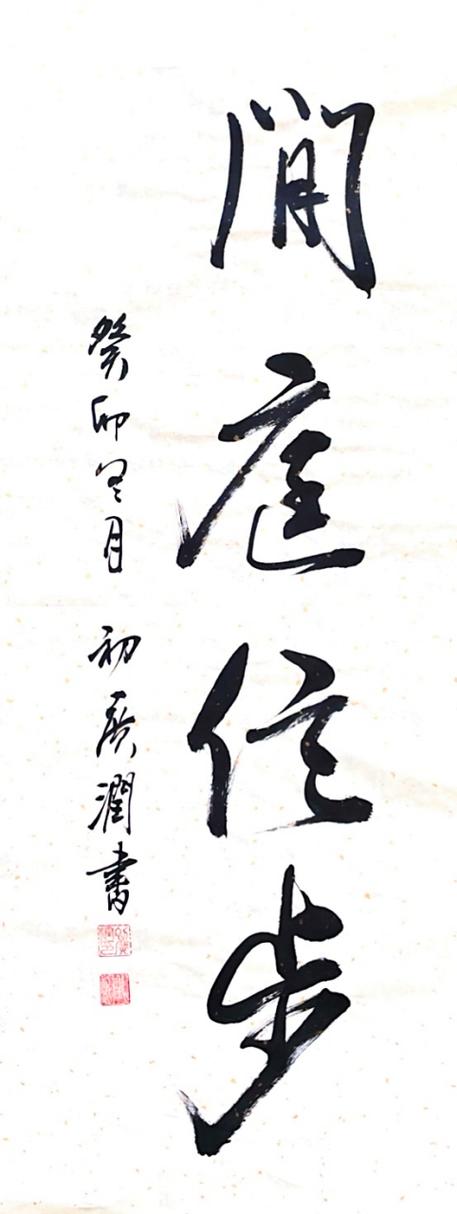 閒庭信步
癸卯冬月 初广潤書